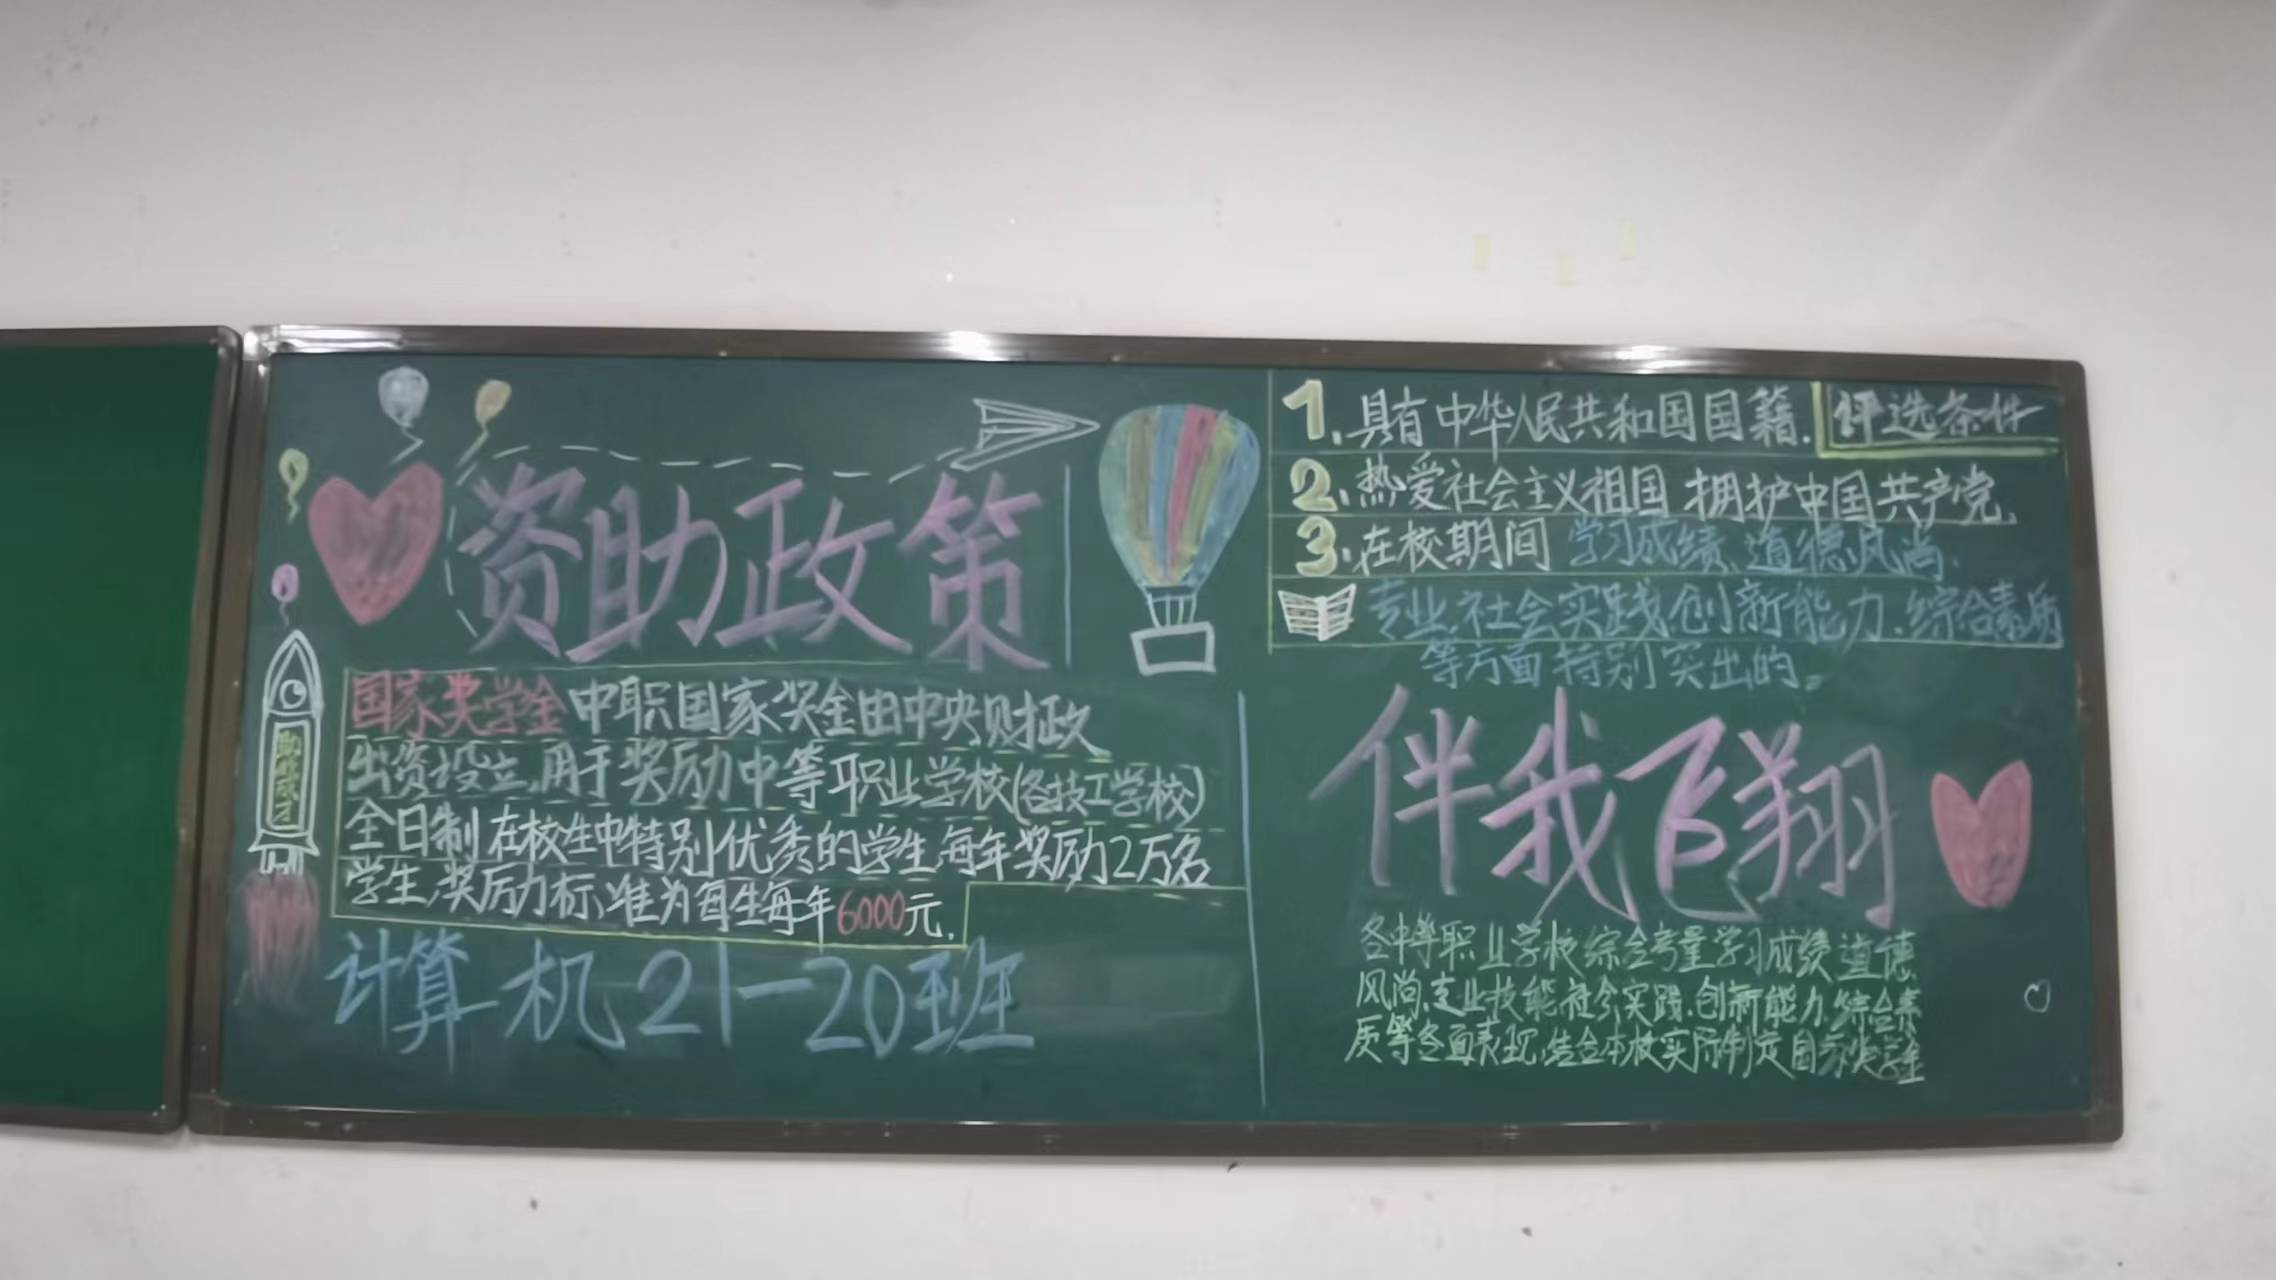 资助政策
国家奖学金 中职国家奖金由中央财政
出资投立,用于奖励中等职业学校(各技工学校)
全日制在校生中特别优秀的学生,每年奖励2万名
学生,奖励标准为每生每年6000元.
计算机21-20班
评选条件
1.具有中华人民共和国国籍.
2.热爱社会主义祖国 拥护中国共产党.
3.在校期间 学习成绩、道德风尚.
专业.社会实践创新能力.综合素质
等方面特别突出的。
伴我飞翔
各中等职业学校综合考量学习成绩道德
风尚.专业技能社会实践.创新能力.综合素
质等各面表现,结合本校实际制定国家奖学金